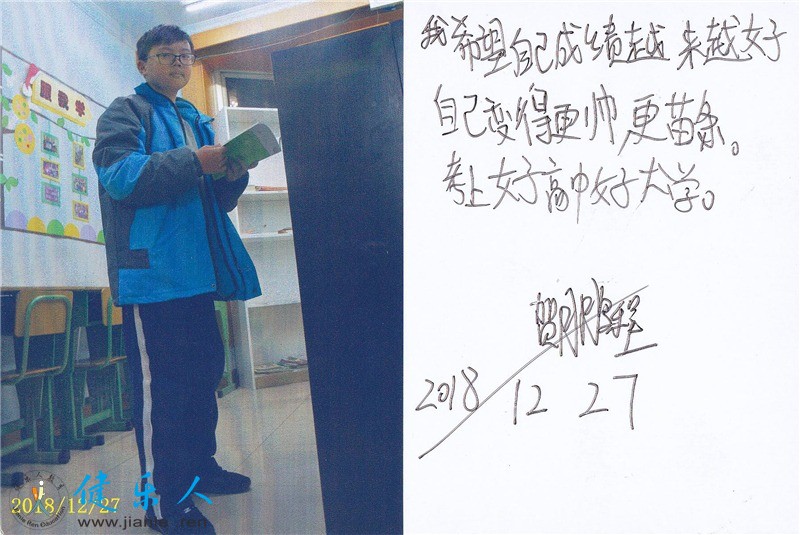 跟我学
2018/12/27
健乐人
我希望自己成绩越来越好
自己变得更帅,更苗条。
考上好高中好大学。
2018 12 27